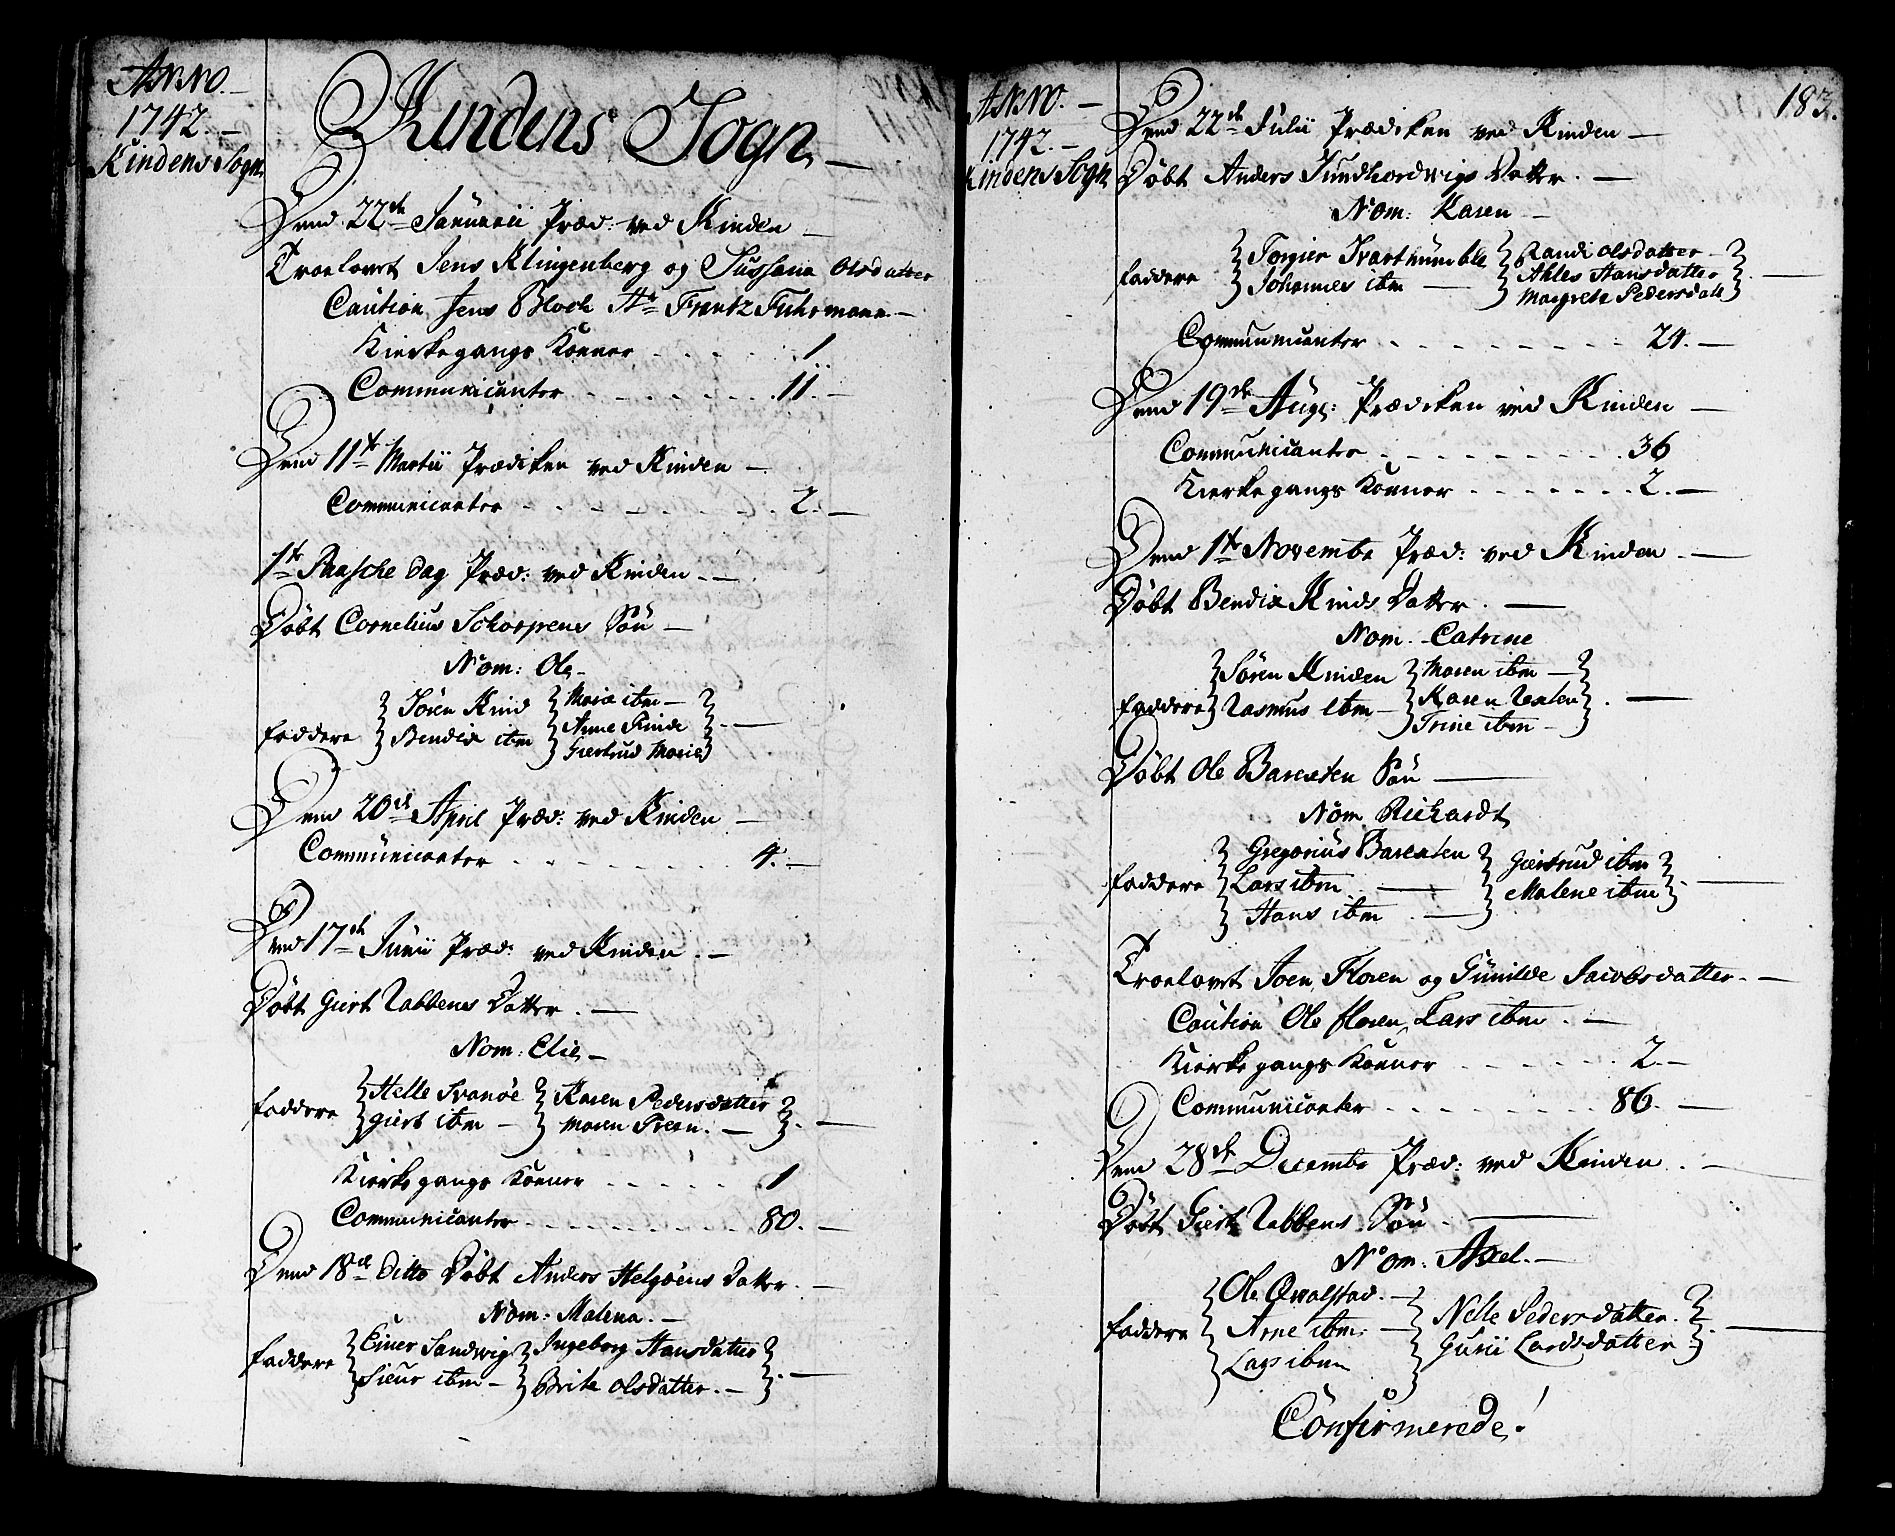 Anno
1742.
Kindens Sogn
Kindens Sogn
Dend 22de Januarii Præd: ved Kinden
Troelovet Jens Klingenberg og Sussana Olsdatter
Caution Jens Bloch Hr Frentz Fuhrmann
Kierkegangs Koener 1
Communicanter 11.
Dend 11te Martii Prædiken ved Kinden
Communicanter 2.
1te Paasche dag Præd: ved Kinden
Døbt Cornelius Schorpens Søn
Nom: Ole
Faddere
Søren Kind
Bendix ibm
Maria ibm
Anne Kinde
Giertrud Marie
Dend 20de April Præd: ved Kinden
Communicanter 4.
Dend 17de Junii Præd: ved Kinden
Døbt Giert Rabbens Datter.
Nom: Elie
Faddere
Helle Svanöe
Giert ibm
Karen Pedersdatter
Maren Sveen.
Kierkegangs Koener 1
Communicanter 80.
Dend 18de Ditto Døbt Anders Helgöens Datter.
Nom: Malena.
Faddere
Einer Sandwig
Sieur ibm
Ingeborg Hansdatter
Brite Olsdatter.
Anno.
1742.
Kindens Sogn
183.
Dend 22de Julii Prædiken ved Kinden
Døbt Anders Sundhordwigs Datter.
Nom: Karen
Faddere
Torgier Svarthumble
Johannes ibm
Randi Olsdatter
Ahles Hansdatter
Margrete Pedersdatt
Communicanter 24.
Dend 19de Aug: Prædiken ved Kinden
Communicanter 36
Kierkegangs Koener 2.
Dend 1te Novembr Præd: ved Kinden
Døbt Bendix Kinds Datter.
Nom. Catrine
Faddere
Søren Kinden
Rasmus ibm
Maren ibm
Karen
Trine ibm
Døbt Ole Barexten Søn
Nom. Richardt
Faddere
Gregorius Barexten
Lars ibm
Hans ibm
Giertrud ibm
Malene ibm
Troelovet Joen Floren og Gunilde Jacobsdatter.
Caution Ole Floren, Lars ibm.
Kierkegangs Koener 2.
Communicanter 86.
Dend 28de Decembr Præd: ved Kinden.
Døbt Giert Rabbens Søn.
Nom: Axel.
Faddere
Ole Qvalstad.
Arne ibm.
Lars ibm
Nelle Pedersdatter.
Gurii Larsdatter
Confirmerede!